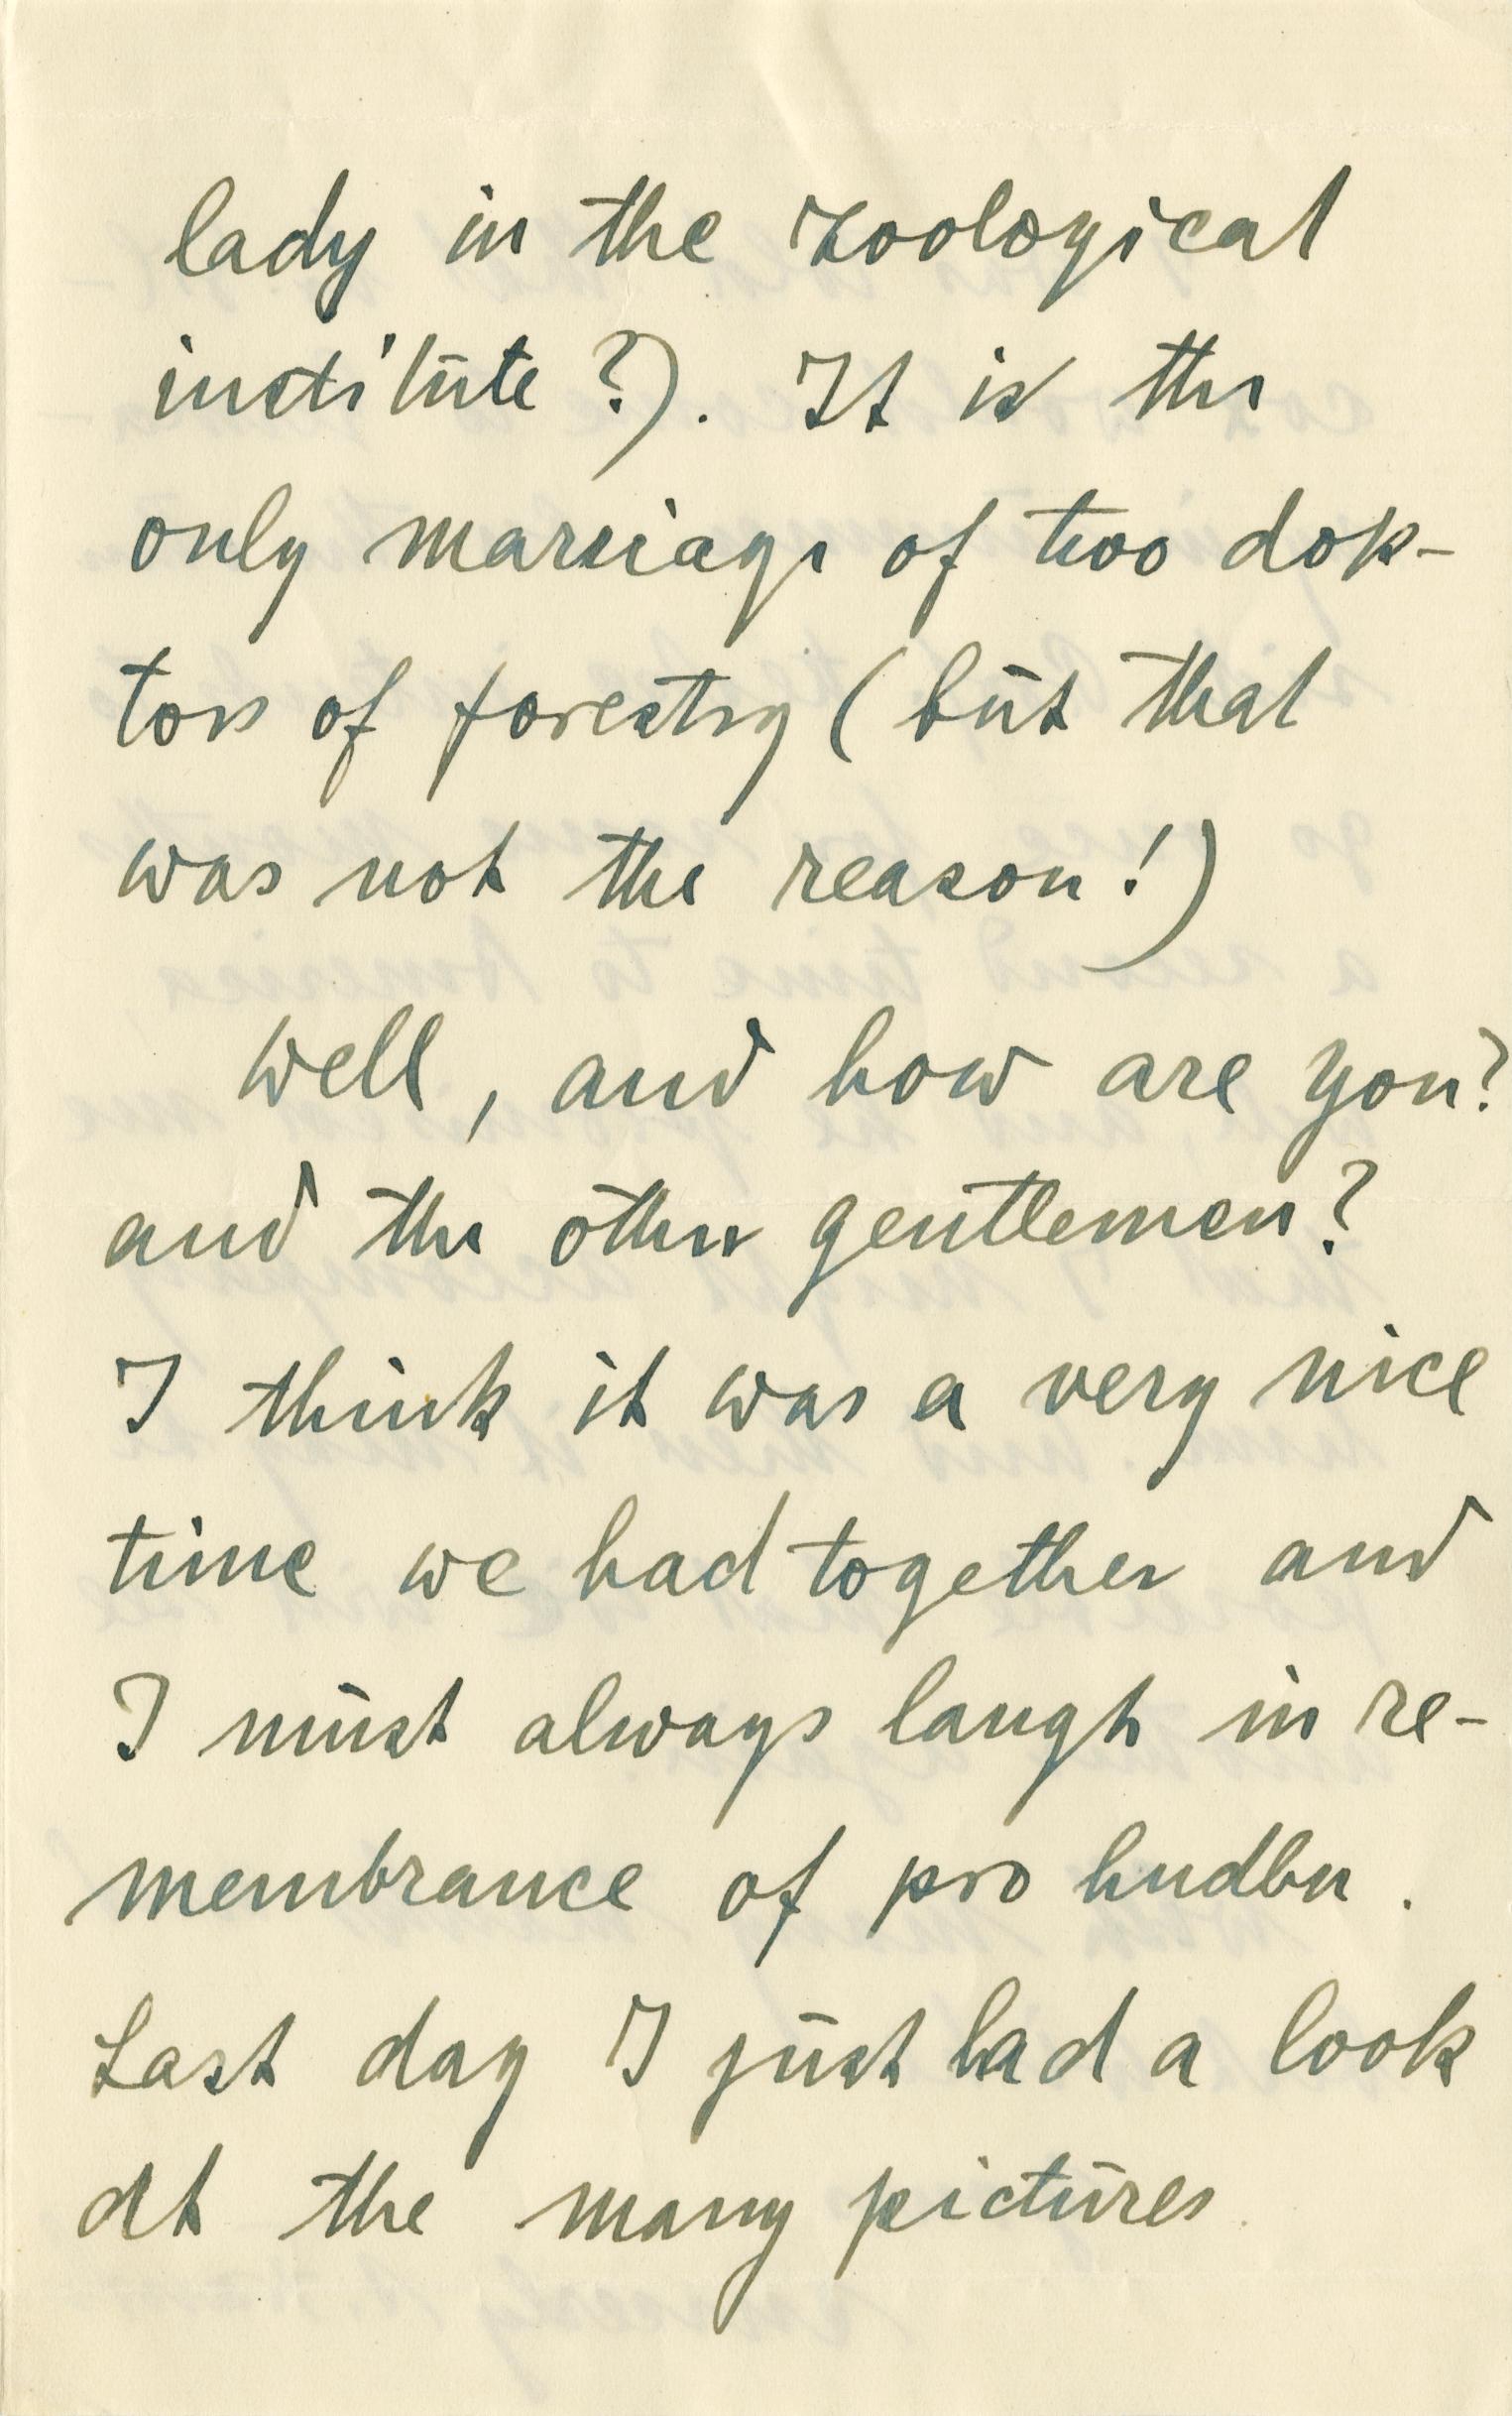 lady in the zoological
institute?). It is the
only marriage of two dok-
tors of forestry (but that
was not the reason!)
Well, and how are you?
and the other gentlemen?
I think it was a very nice
time we had together and
I must always laugh in re-
membrance of pro
Last day I just had a look
at the many pictures